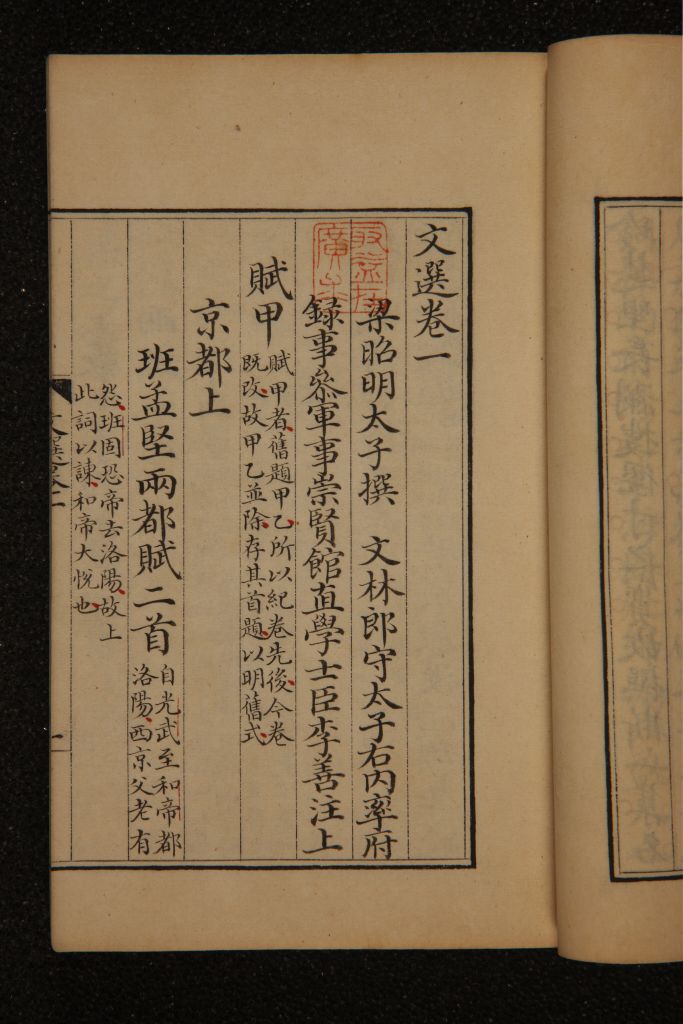 文選卷一
梁昭明太子撰　文林郎守太子右内率府
録事叅軍事崇賢館直學士臣李善注上
賦甲
賦甲者舊題甲乙所以紀卷先後今卷
既改故甲乙並除存其首題以明舊式
京都上
班孟堅兩都賦二首
自光武至和帝都
洛陽西京父老有
怨班固恐帝去洛陽故上
此詞以諫和帝大悦也